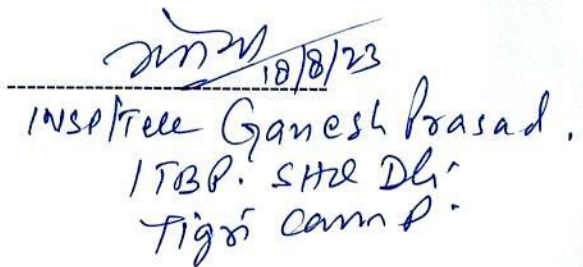 गणेश
18/8/23
INSP/Tele Ganesh Prasad.
ITBP. SHQ Dli-
Tigri Camp.